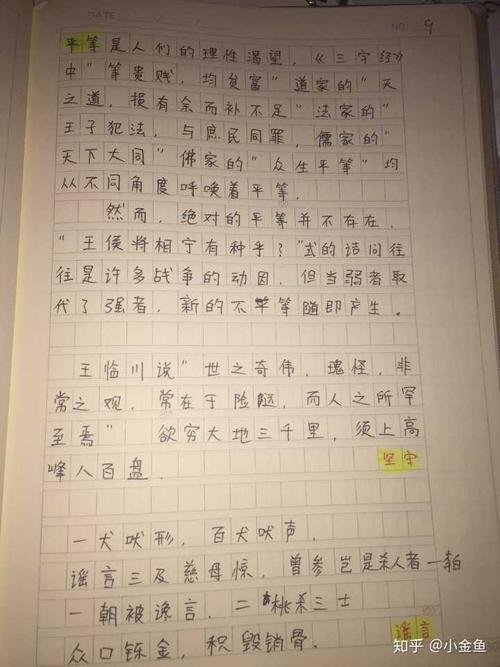 DATE
NO. 9
平等是人们的理性渴望，《三字经》
中"等贵贱，均贫富"道家的"天
之道，损有余而补不足"法家的"
王子犯法，与庶民同罪，儒家的"
天下大同"佛家的"众生平等"均
从不同角度呼唤着平等.
然而，绝对的平等并不存在.
"王侯将相宁有种乎？"式的诘问往
往是许多战争的动因，但当弱者取
代了强者，新的不平等随即产生。
王临川说"世之奇伟、瑰怪，非
常之观，常在于险远，而人之所罕
至焉"欲穷大地三千里，须上高
峰八百盘.
坚守
一犬吠形，百犬吠声.
谣言三及慈母惊，曾参岂是杀人者
一朝被谗言，二桃杀三士
众口铄金，积毁销骨.
谣言
知乎 @小金鱼